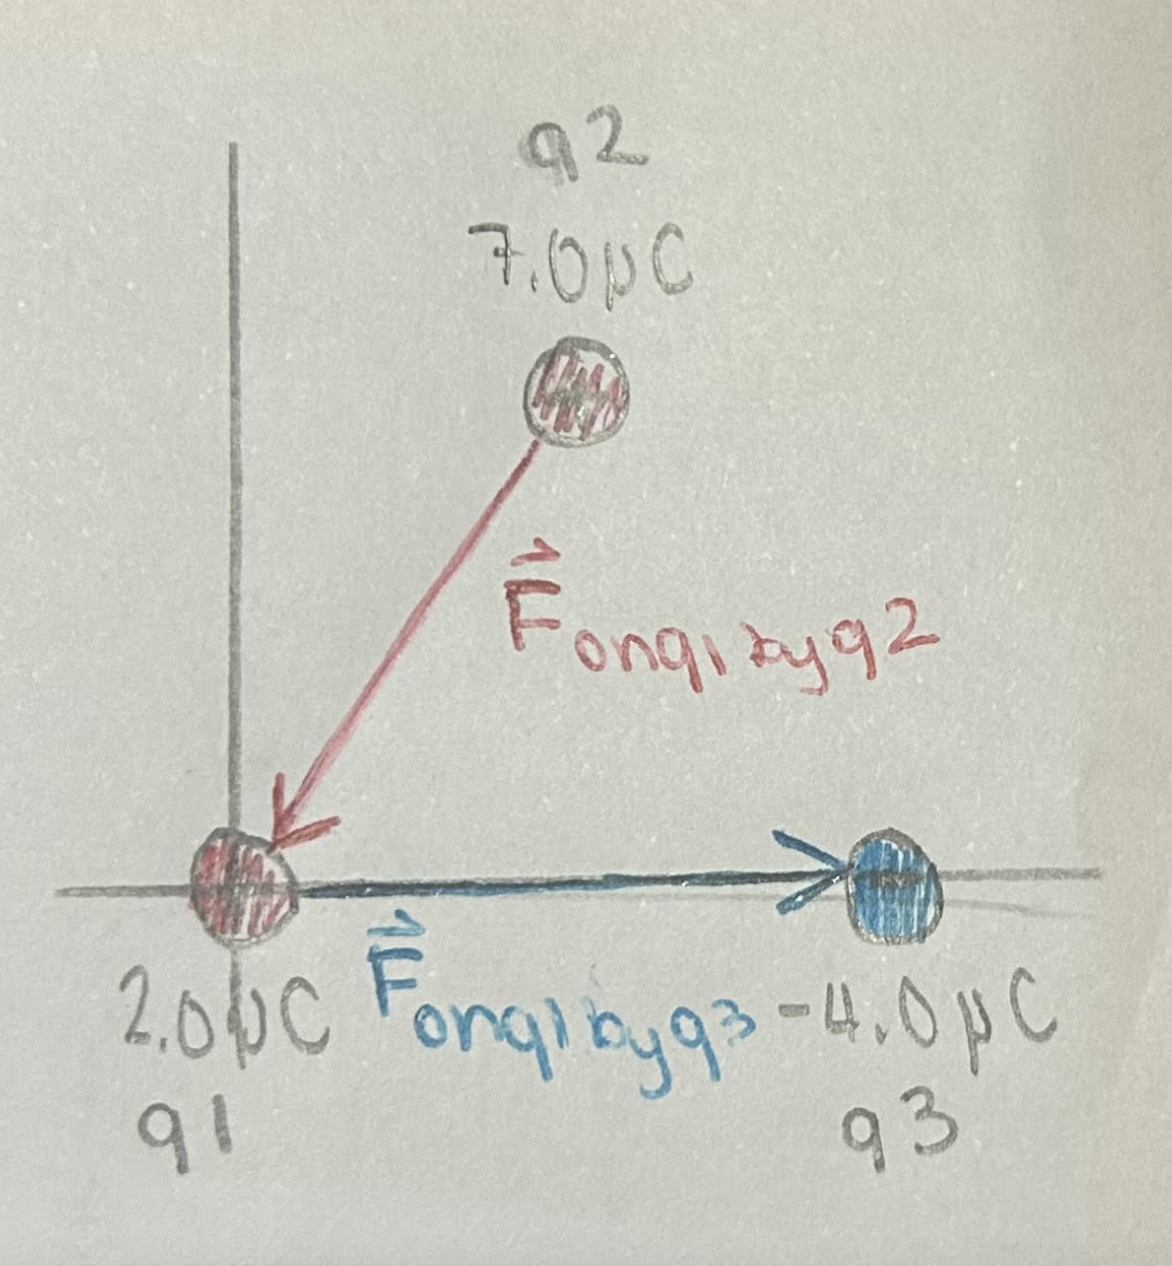 q2
7.0μC
F⃗ on q1 by q2
2.0μC
F⃗ on q1 by q3
-4.0μC
q1
q3